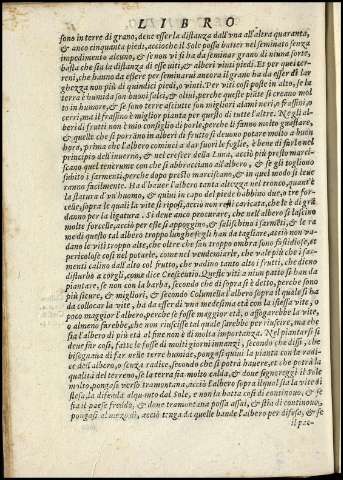 LIBRO
sono in terre di grano, deue esser la distanza dall'vna all'altra quaranta,
& anco cinquanta piedi, accioche il Sole possa batter nel seminato senza
impedimento alcuno, & se non vi si hà da seminar grano di niuna sorte,
basta che sia la distanza di esse viti, & alberi vinti piedi. Et per quei ter-
reni, che hanno da essere per seminarui ancora il grano hà da esser di lar
ghezza non più di quindici piedi, o vinti. Per viti così poste in alto, se la
terra è humida son buoni salci, & olmi, perche queste piante si creano molto
in humore, & se sono terre asciutte son migliori
cerri, ma il frassino è miglior pianta per questo di tutte l'altre. Negli al-
beri di frutti non è mio consiglio di porle, perche li fanno molto guastare,
& quelle che si porranno in alberi di frutti si deuono potare molto a buon'
hora, prima che l'albero cominci a dar fuori le foglie, è bene di farlo nel
principio dell'inuerno, & nel crescer della Luna, acciò più presto marci-
scano quel tenerume con che si abbracciano all'albero, & se gli togliono
subito i sarmenti, perche dopo presto marciscano, & in quel modo si leue
ranno facilmente. Hà d'hauer l'albero tanta altezza nel tronco, quant'è
la statura d'vn huomo, & quiui in capo del piede habbino due, o tre for-
celle, sopra le quali la vite si riposi, acciò non resti caricata, che le è di gra
danno per la ligatura. Si deue anco procurare, che nell'albero si lascino
molte forcelle, acciò per esse si appoggino, & salischino i sarmēti, & le ra
me di questo tal albero troppo lunghe se gli han da tagliare, acciò non va-
dano le viti troppo alte, che oltre che fan troppo ombra sono fastidiose, et
pericolose così nel potarle, come nel vendemiarle, che vale più che i sar-
menti calino dall'alto col frutto, che vadino tanto alto i frutti, che dieno
disturbo a corgli, come dice Crescentio. Queste viti a niun patto si han da
piantare, se non con la barba, secondo che di sopra si è detto, perche sono
più sicure, & migliori, & secondo Columella l'albero sopra il quale si hà
da collocar la vite, hà da esser di vna medesima età con la istessa vite, o
poco maggior l'albero, perche se fosse maggior età, o affogarebbe la vite,
o almeno farebbe, che non riuscisse tal quale sarebbe per riuscire, ma che
sia l'albero di più età al fine non è di molta importanza. Nel piantarsi si
deue far così, fatte le fosse di molti giorni innanzi, secondo che dissi, che
bisognaua di far nelle terre humide, pongasi quiui la pianta con la radi-
ce dell'albero, o senza radice, secondo che si potrà hauere, et che potrà la
qualità del terreno, se la terra sia molto calda, & doue signoreggi il Sole
molto, pongasi verso tramontana, acciò l'albero sopra il qual sia la vite di
stesa, la difenda alquanto dal Sole, e non la batta così di continouo, & se
sia il paese freddo, & doue tramontana possa assai, & stia di continouo,
pongasi al mezodì, acciò tenga da quelle bande l'albero per difesa, & se
il pae-